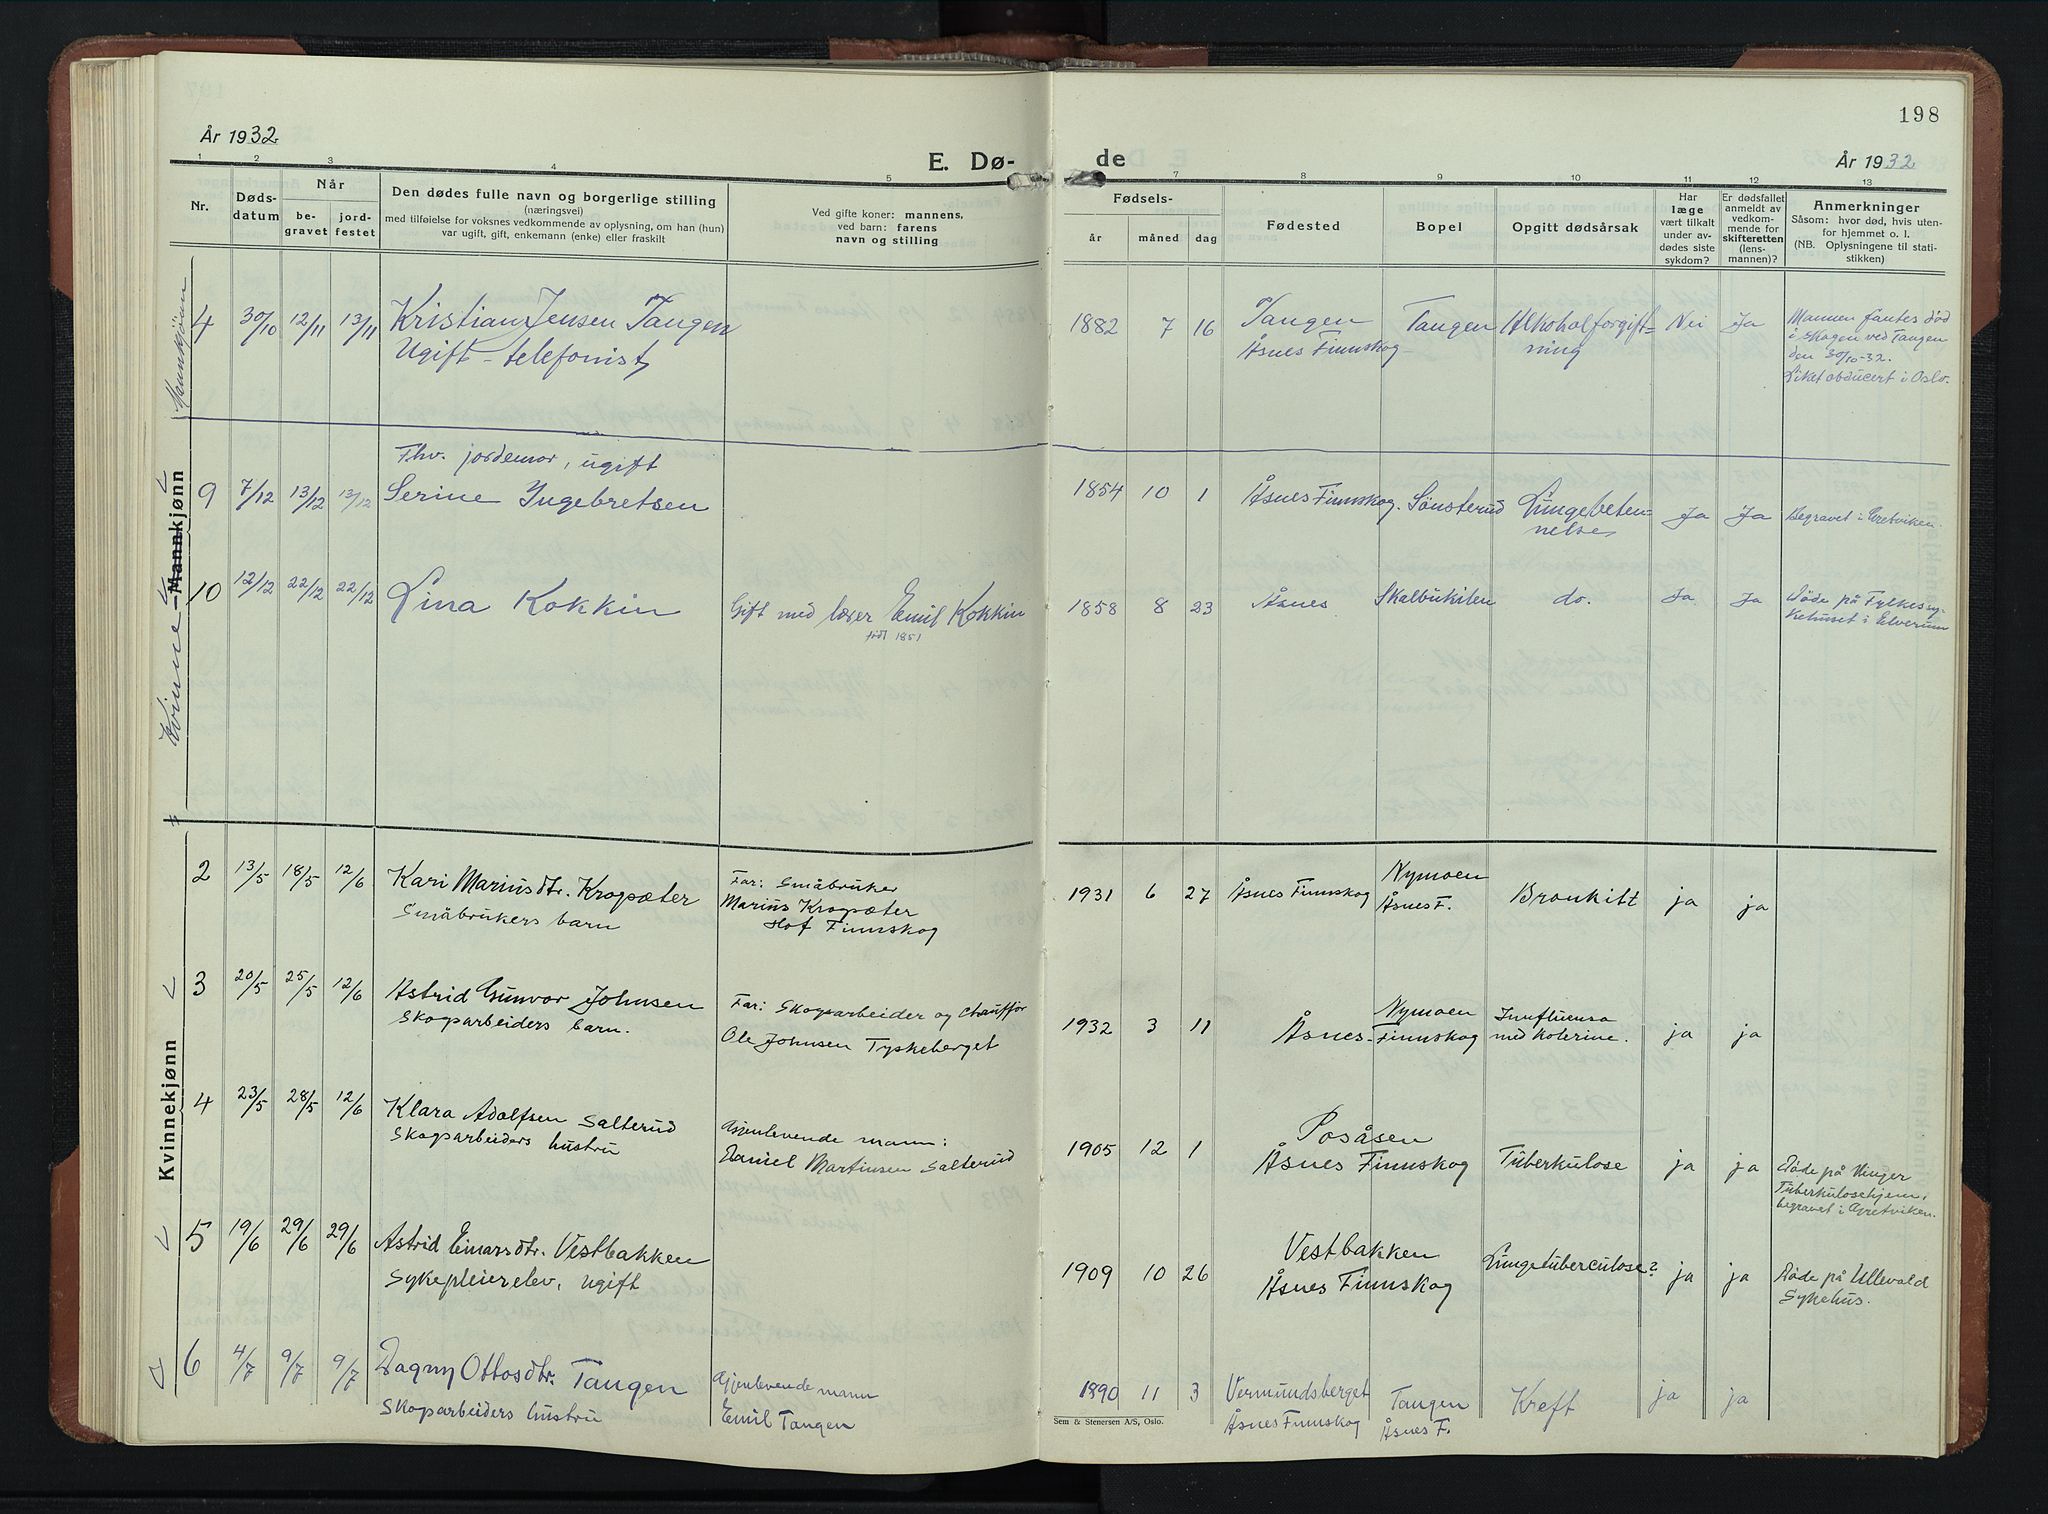 År 1932
E. Dø-
1 2 3 4 5
Nr.
Døds-
datum
Når
be-
gravet
jord-
festet
Den dødes fulle navn og borgerlige stilling
(næringsvei)
med tilføielse for voksnes vedkommende av oplysning, om han (hun)
var ugift, gift, enkemann (enke) eller fraskilt
Ved gifte koner: mannens,
ved barn: farens
navn og stilling
Mannkjønn
4 30/10 12/11 13/11 Kristian Jensen Tangen
Ugift - telefonist
Kvinne Mannkjønn
Fhv. jordemor, ugift
9 7/12 13/12 13/12 Serine Ingebretsen
10 12/12 22/12 22/12 Lina Kokkin Gift med læser Emil Kokkin
født 1851
Kvinnekjønn
2 13/5 18/5 12/6 Kari Mariusdtr. Krogsæter Far: Småbruker
Småbrukers barn Marius Krogsæter
Hof Finnskog
3 20/5 25/5 12/6 Astrid Gunvor Johnsen Far: Skogsarbeider og Chauffør
Skogsarbeiders barn. Ole Johnsen Tyskeberget
4 23/5 28/5 12/6 Klara Adolfsen Salterud Gjenlevende mann:
Skogsarbeiders hustru Daniel Martinsen Salterud
5 19/6 29/6 29/6 Astrid Einarsdtr. Vestbakken
Sykepleierelev, ugift
6 4/7 9/7 9/7 Dagny Ottosdtr. Tangen Gjenlevende mann
Skogsarbeiders hustru Emil Tangen
198
de
År 1932
7 8 9 10 11 12 13
Fødsels-
år måned dag
Fødested
Bopel
Opgitt dødsårsak
Har
læge
vært tilkalt
under av-
dødes siste
sykdom?
Er dødsfallet
anmeldt av
vedkom-
mende for
skifteretten
(lens-
mannen)?
Anmerkninger
Såsom: hvor død, hvis uten-
for hjemmet o. l.
(NB. Oplysningene til stati-
stikken)
1882 7 16 Tangen Tangen Alkoholforgift- Nei Ja Mannen fantes død
Åsnes Finnskog ning i skogen ved Tangen
den 30/10-32.
Liket obducert i Oslo.
1854 10 1 Åsnes Finnskog. Sønsterud Lungebeten- Ja Ja Begravet i Gretviken.
nelse
1858 8 23 Åsnes Skalbukilen do. Ja Ja Døde på Fylkessy-
kehuset i Elverum
1931 6 27 Åsnes Finnskog Nymoen Bronkitt ja ja
Åsnes F.
1932 3 11 Nymoen Innfluensa ja ja
Åsnes-Finnskog med Kolerine.
1905 12 1 Posåsen
Åsnes Finnskog Tuberkulose ja ja Døde på Vinger
Tuberkulosehjem,
begravet i Gretviken.
1909 10 26 Vestbakken Lungetuberculose? ja ja Døde på Ullevald
Åsnes Finnskog Sykehus.
1890 11 3 Vermundsberget Tangen Kreft ja ja
Åsnes Finnskog Åsnes F.
Sem & Stenersen A/S, Oslo.